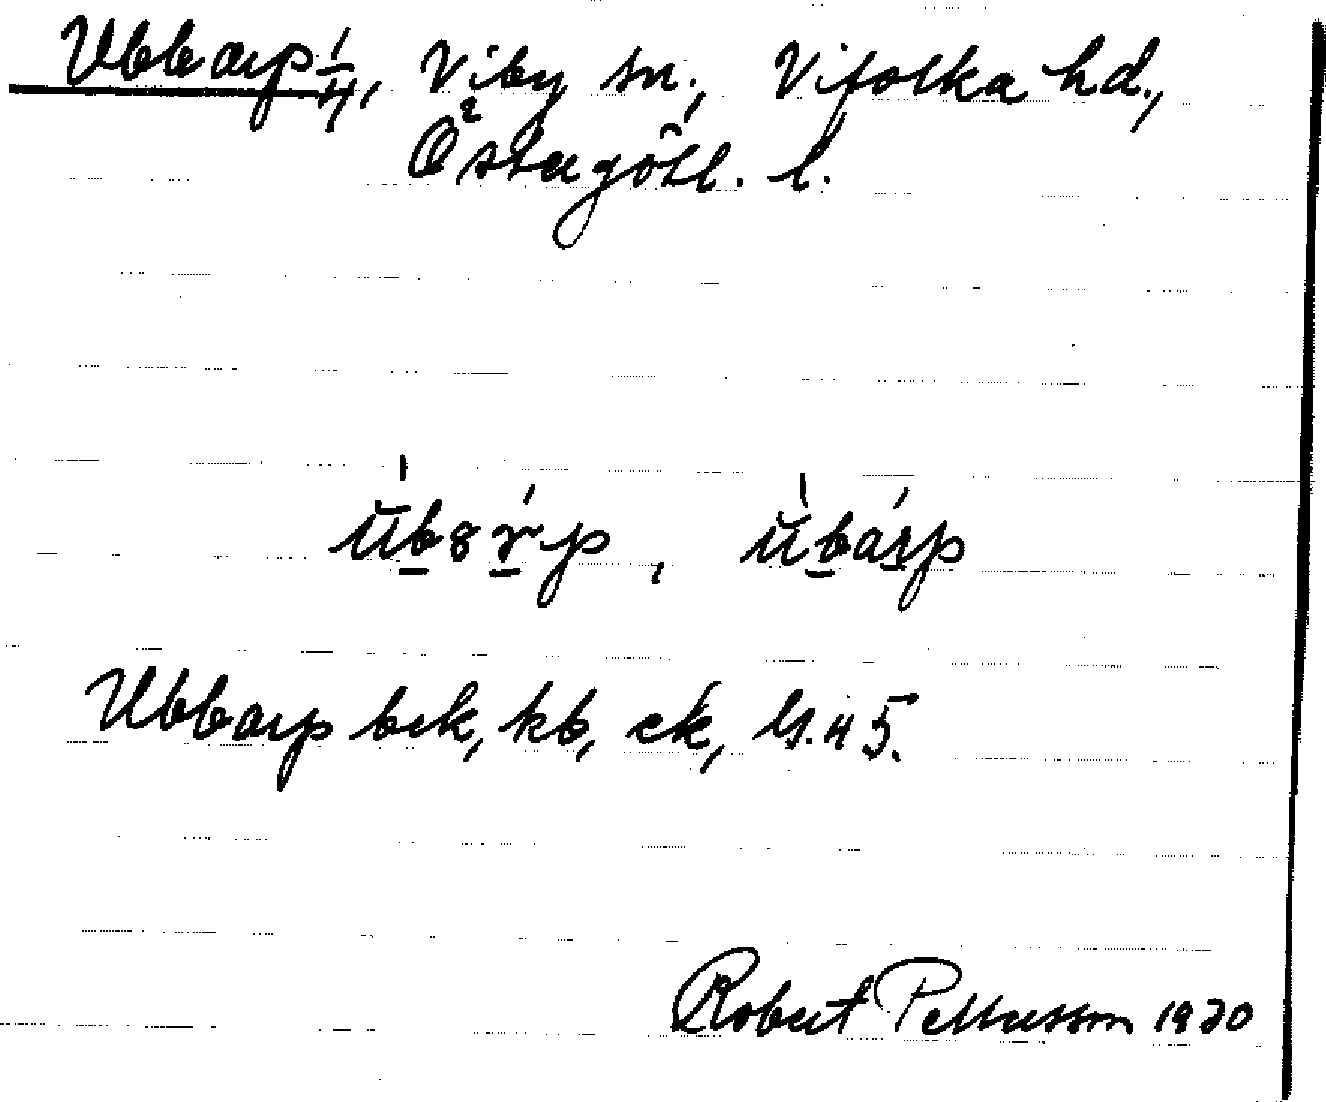 Ubbarp 1/4, Viby sn., Vifolka hd.,
Östergötl. l.
Ubbarp bek, kb, ek, G. 45.
Robert Pettersson 1930